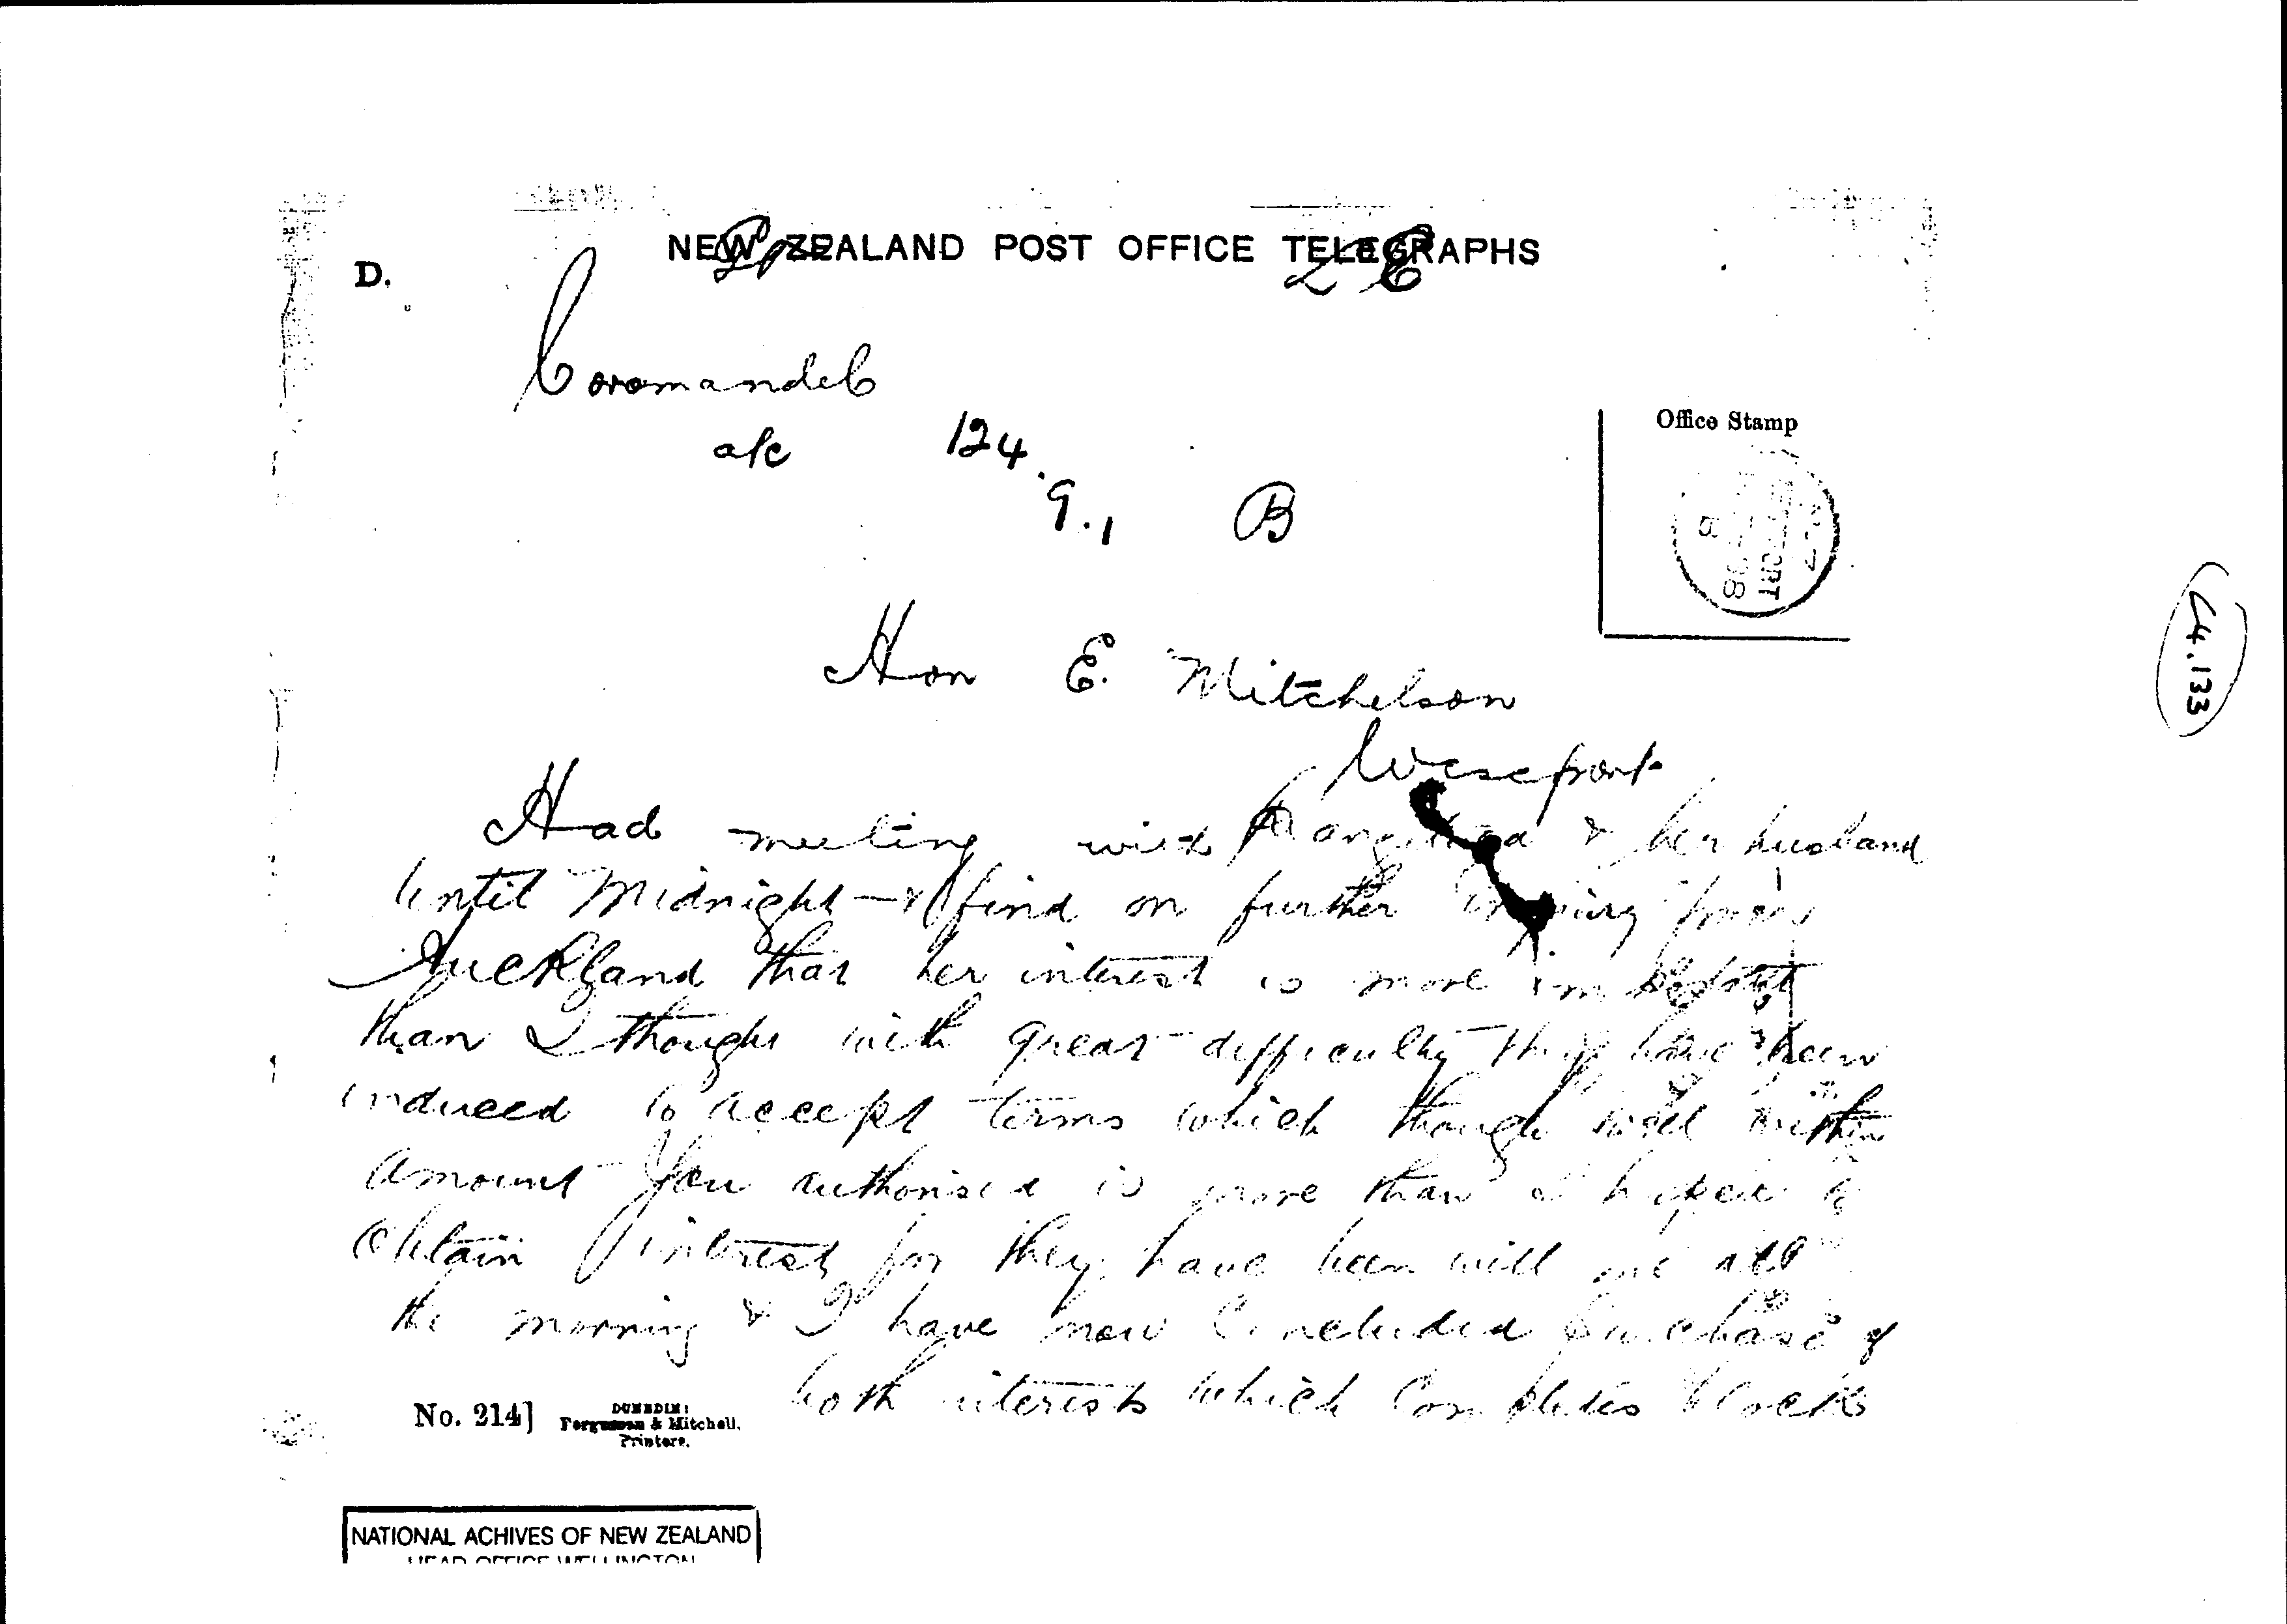 NEW ZEALAND POST OFFICE TELEGRAPHS
D.
Coromandel
a/c 124
9.1 B
Office Stamp
Hon E. Mitchelson
Westport
Had meeting with & her husband
until Midnight & find on further from
Auckland that her interest is more important
than I thought with great difficulty they have been
induced to accept terms which though well within
amount you authorised is more than I hoped to
obtain interest for they have been with me all
the morning & I have now concluded purchase of
both interests which completes blocks
No. 214]
DUNEDIN:
Fergusson & Mitchell,
Printers.
NATIONAL ACHIVES OF NEW ZEALAND
HEAD OFFICE WELLINGTON
C4.133